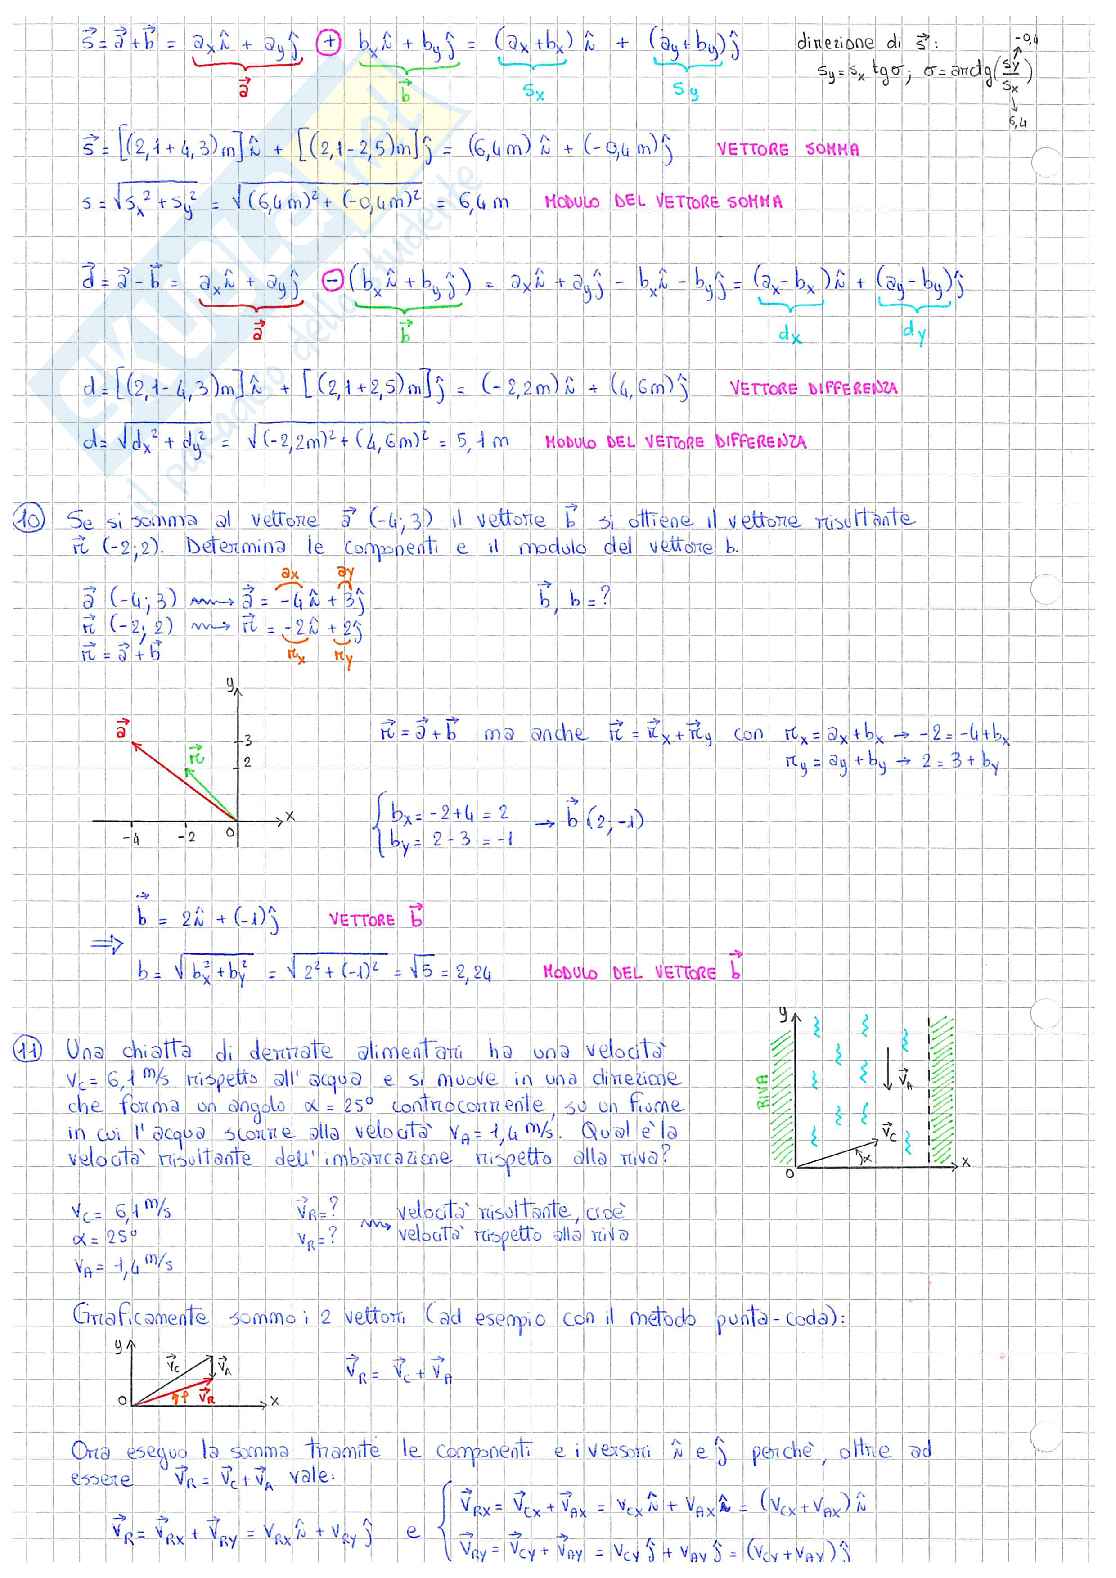 s⃗ = a⃗ + b⃗ = aₓî + a_yĵ + bₓî + b_yĵ = (aₓ+bₓ) î + (a_y+b_y) ĵ
direzione di s⃗:
a⃗ b⃗ sₓ s_y
s_y = sₓ tgσ; σ = arctg(s_y/sₓ)
-0,4
6,4
s⃗ = [(2,1+4,3)m] î + [(2,1-2,5)m] ĵ = (6,4m) î + (-0,4m) ĵ VETTORE SOMMA
s = √(sₓ² + s_y²) = √((6,4m)² + (-0,4m)²) = 6,4 m MODULO DEL VETTORE SOMMA
d⃗ = a⃗ - b⃗ = aₓî + a_yĵ - (bₓî + b_yĵ) = aₓî + a_yĵ - bₓî - b_yĵ = (aₓ-bₓ) î + (a_y-b_y) ĵ
a⃗ b⃗ dₓ d_y
d = [(2,1-4,3)m] î + [(2,1+2,5)m] ĵ = (-2,2m) î + (4,6m) ĵ VETTORE DIFFERENZA
d = √(dₓ² + d_y²) = √((-2,2m)² + (4,6m)²) = 5,1 m MODULO DEL VETTORE DIFFERENZA
10 Se si somma al vettore a⃗ (-4; 3) il vettore b⃗ si ottiene il vettore risultante
r⃗ (-2; 2). Determina le componenti e il modulo del vettore b.
aₓ a_y
a⃗ (-4; 3) → a⃗ = -4î + 3ĵ b⃗, b = ?
r⃗ (-2; 2) → r⃗ = -2î + 2ĵ
r⃗ = a⃗ + b⃗ rₓ r_y
y
a⃗
r⃗
3
2
-4 -2 0 x
r⃗ = a⃗ + b⃗ ma anche r⃗ = r⃗ₓ + r⃗_y con rₓ = aₓ + bₓ → -2 = -4 + bₓ
r_y = a_y + b_y → 2 = 3 + b_y
bₓ = -2+4 = 2
b_y = 2-3 = -1 → b⃗ (2; -1)
⇒ b⃗ = 2î + (-1)ĵ VETTORE b⃗
b = √(bₓ² + b_y²) = √(2² + (-1)²) = √5 = 2,24 MODULO DEL VETTORE b⃗
11 Una chiatta di derrate alimentari ha una velocità
v_C = 6,1 m/s rispetto all'acqua e si muove in una direzione
che forma un angolo α = 25° controcorrente, su un fiume
in cui l'acqua scorre alla velocità v_A = 1,4 m/s. Qual è la
velocità risultante dell'imbarcazione rispetto alla riva?
y
RIVA
v⃗_A
v⃗_C
α
0 x
v_C = 6,1 m/s v⃗_R = ? → velocità risultante, cioè
α = 25° v_R = ? velocità rispetto alla riva
v_A = 1,4 m/s
Graficamente sommo i 2 vettori (ad esempio con il metodo punta-coda):
y
v⃗_C v⃗_A
v⃗_R
0 x
v⃗_R = v⃗_C + v⃗_A
Ora eseguo la somma tramite le componenti e i versori î e ĵ perchè, oltre ad
essere v⃗_R = v⃗_C + v⃗_A vale:
v⃗_R = v⃗_RX + v⃗_RY = v_RX î + v_RY ĵ e
v⃗_RX = v⃗_CX + v⃗_AX = v_CX î + v_AX î = (v_CX + v_AX) î
v⃗_RY = v⃗_CY + v⃗_AY = v_CY ĵ + v_AY ĵ = (v_CY + v_AY) ĵ